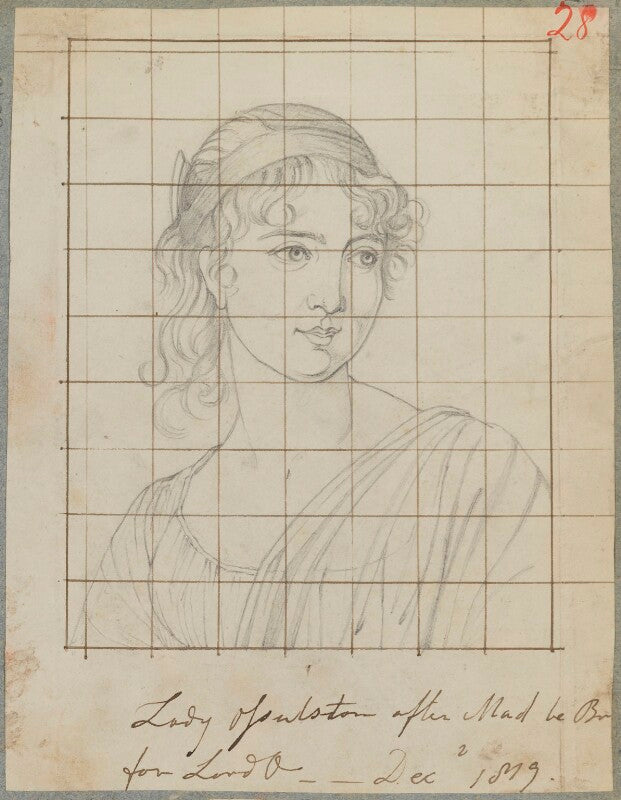 28
Lady Ossulston after Mad le Br
for Lord O — — Dec 2 1819.